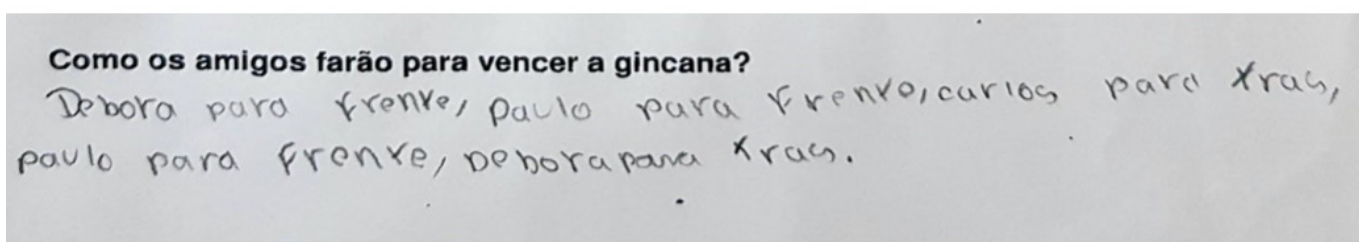 Como os amigos farão para vencer a gincana?
Debora para frente, paulo para Frente, carlos para tras,
paulo para frente, Debora para tras.